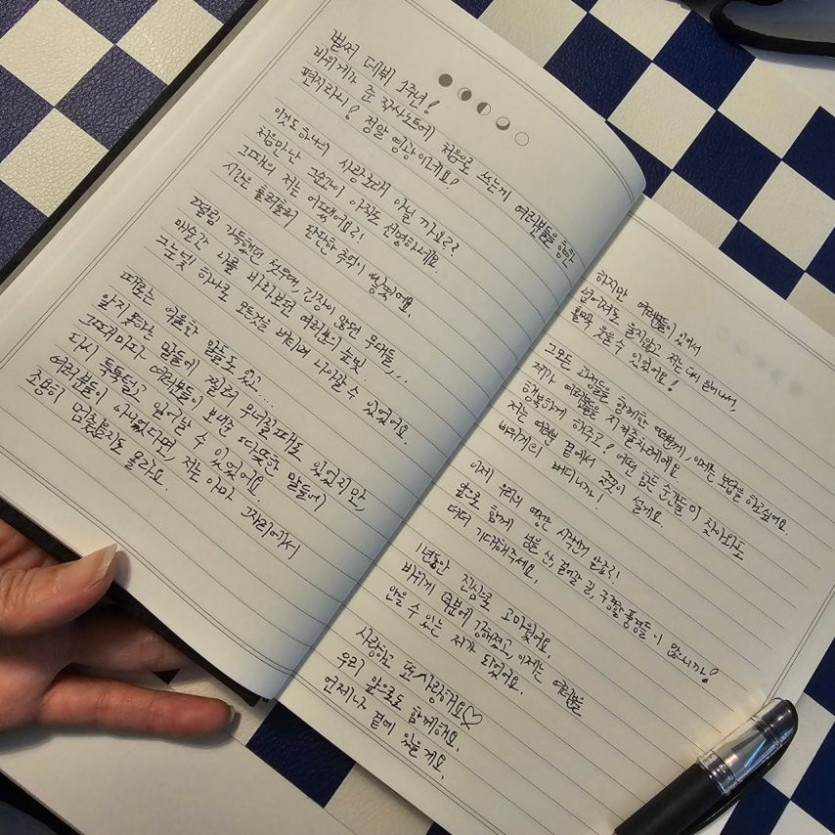 벌써 데뷔 1주년!
바위게가 준 작사노트에 처음으로 쓰는게 여러분들을 향한
편지라니! 정말 영광이네요!
이것도 하나의 사랑노래 아닐까요??
처음만난 그순간이 아직도 선명하네요.
그때의 저는 어땠어요?!
시간은 흘러흘러 단단한 추억이 쌓였어요.
떨림 가득했던 첫무대, 긴장이 많던 무대들,..
매순간 나를 바라보던 여러분의 눈빛.
그눈빛 하나로 모든것을 버티며 나아갈 수 있었어요.
때로는 억울한 말들도 있고....
알지못하는 말들에 찔려 무너질때도 있었지만,
그럴때마다 여러분들이 보내준 따뜻한 말들에
다시 툭툭털고 일어날 수 있었어요.
여러분들이 아니었다면, 저는 아마 그자리에서
조용히 멈춰있을지도 몰라요.
하지만 여러분들이 있어서
넘어져도 울지않고 저는 다시 일어나서,
활짝 웃을 수 있었어요!
그모든 과정들을 함께한 여러분께, 이제는 보답을 하고싶어요.
제가 여러분들을 지켜줄차례에요.
행복하게 해주고! 어떤 힘든 순간들이 찾아와도
저는 여러분 곁에서 굳굳이 설게요.
바위게의 버디니까!
이제 우리의 여정은 시작인거 알죠?!
앞으로 함께 넘을 산, 걸어갈 길, 구경할 풍경들이 많으니까!
더더 기대해주세요.
1년동안 진심으로 고마웠어요.
바위게 덕분에 강해졌고, 이제는 여러분을
안을 수 있는 제가 되었어요.
사랑하고 또 사랑해요♡
우리 앞으로도 함께해요.
언제나 곁에 있을게요.